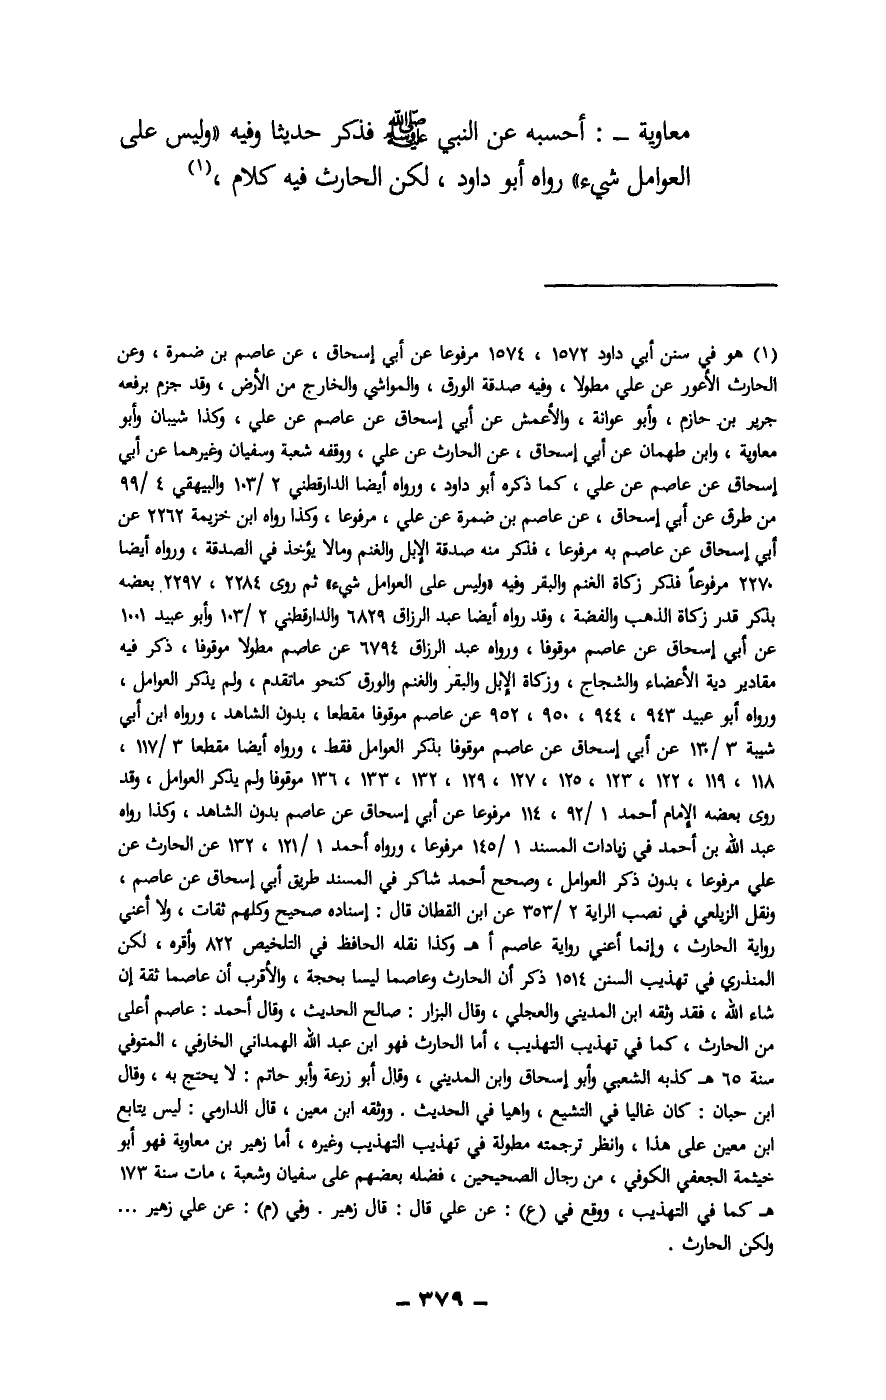 معاوية ـ : أحسبه عن النبي ﷺ فذكر حديثا وفيه «وليس على
العوامل شيء» رواه أبو داود ، لكن الحارث فيه كلام ،(١)
(١) هو في سنن أبي داود ١٥٧٢ ، ١٥٧٤ مرفوعا عن أبي إسحاق ، عن عاصم بن ضمرة ، وعن
الحارث الأعور عن علي مطولا ، وفيه صدقة الورق ، والمواشي والخارج من الأرض ، وقد جزم برفعه
جرير بن حازم ، وأبو عوانة ، والأعمش عن أبي إسحاق عن عاصم عن علي ، وكذا شيبان وأبو
معاوية ، وابن طهمان عن أبي إسحاق ، عن الحارث عن علي ، ووقفه شعبة وسفيان وغيرهما عن أبي
إسحاق عن عاصم عن علي ، كما ذكره أبو داود ، ورواه أيضا الدارقطني ٢ /١٠٣ والبيهقي ٤ /٩٩
من طرق عن أبي إسحاق ، عن عاصم بن ضمرة عن علي ، مرفوعا ، وكذا رواه ابن خزيمة ٢٢٦٢ عن
أبي إسحاق عن عاصم به مرفوعا ، فذكر منه صدقة الإبل والغنم ومالا يؤخذ في الصدقة ، ورواه أيضا
٢٢٧٠ مرفوعاً فذكر زكاة الغنم والبقر وفيه «وليس على العوامل شيء» ثم روى ٢٢٨٤ ، ٢٢٩٧ بعضه
بذكر قدر زكاة الذهب والفضة ، وقد رواه أيضا عبد الرزاق ٦٨٢٩ والدارقطني ٢ /١٠٣ وأبو عبيد ١٠٠١
عن أبي إسحاق عن عاصم موقوفا ، ورواه عبد الرزاق ٦٧٩٤ عن عاصم مطولا موقوفا ، ذكر فيه
مقادير دية الأعضاء والشجاج ، وزكاة الإبل والبقر والغنم والورق كنحو ماتقدم ، ولم يذكر العوامل ،
ورواه أبو عبيد ٩٤٣ ، ٩٤٤ ، ٩٥٠ ، ٩٥٢ عن عاصم موقوفا مقطعا ، بدون الشاهد ، ورواه ابن أبي
شيبة ٣ /١٣٠ عن أبي إسحاق عن عاصم موقوفا بذكر العوامل فقط ، ورواه أيضا مقطعا ٣ /١١٧ ،
١١٨ ، ١١٩ ، ١٢٢ ، ١٢٣ ، ١٢٥ ، ١٢٧ ، ١٢٩ ، ١٣٢ ، ١٣٣ ، ١٣٦ موقوفا ولم يذكر العوامل ، وقد
روى بعضه الإمام أحمد ١ /٩٢ ، ١١٤ مرفوعا عن أبي إسحاق عن عاصم بدون الشاهد ، وكذا رواه
عبد الله بن أحمد في زيادات المسند ١ /١٤٥ مرفوعا ، ورواه أحمد ١ /١٢١ ، ١٣٢ عن الحارث عن
علي مرفوعا ، بدون ذكر العوامل ، وصحح أحمد شاكر في المسند طريق أبي إسحاق عن عاصم ،
ونقل الزيلعي في نصب الراية ٢ /٣٥٣ عن ابن القطان قال : إسناده صحيح وكلهم ثقات ، ولا أعني
رواية الحارث ، وإنما أعني رواية عاصم أ هـ وكذا نقله الحافظ في التلخيص ٨٢٢ وأقره ، لكن
المنذري في تهذيب السنن ١٥١٤ ذكر أن الحارث وعاصما ليسا بحجة ، والأقرب أن عاصما ثقة إن
شاء الله ، فقد وثقه ابن المديني والعجلي ، وقال البزار : صالح الحديث ، وقال أحمد : عاصم أعلى
من الحارث ، كما في تهذيب التهذيب ، أما الحارث فهو ابن عبد الله الهمداني الخارفي ، المتوفي
سنة ٦٥ هـ كذبه الشعبي وأبو إسحاق وابن المديني ، وقال أبو زرعة وأبو حاتم : لا يحتج به ، وقال
ابن حبان : كان غاليا في التشيع ، واهيا في الحديث . ووثقه ابن معين ، قال الدارمي : ليس يتابع
ابن معين على هذا ، وانظر ترجمته مطولة في تهذيب التهذيب وغيره ، أما زهير بن معاوية فهو أبو
خيثمة الجعفي الكوفي ، من رجال الصحيحين ، فضله بعضهم على سفيان وشعبة ، مات سنة ١٧٣
هـ كما في التهذيب ، ووقع في (ع) : عن علي قال : قال زهير . وفي (م) : عن علي زهير ...
ولكن الحارث .
ـ ٣٧٩ ـ